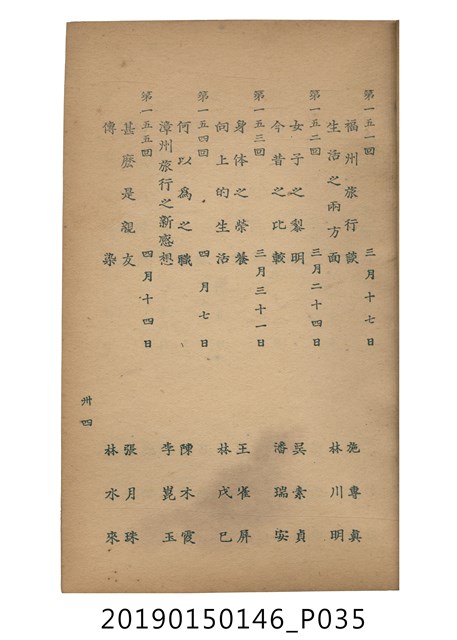 第一五一回　三月十七日
福州旅行談　施專真
生活之兩方面　林川明
第一五二回　三月二十四日
女子之黎明　吳素貞
今昔之比較　潘瑞安
第一五三回　三月三十一日
身体之榮養　王雀屏
向上的生活　林戊巳
第一五四回　四月七日
何以為之職　陳木霞
漳州旅行之新感想　李崑玉
第一五五回　四月十四日
甚麼是親友　張月珠
傳染　林水來
卅四
20190150146_P035